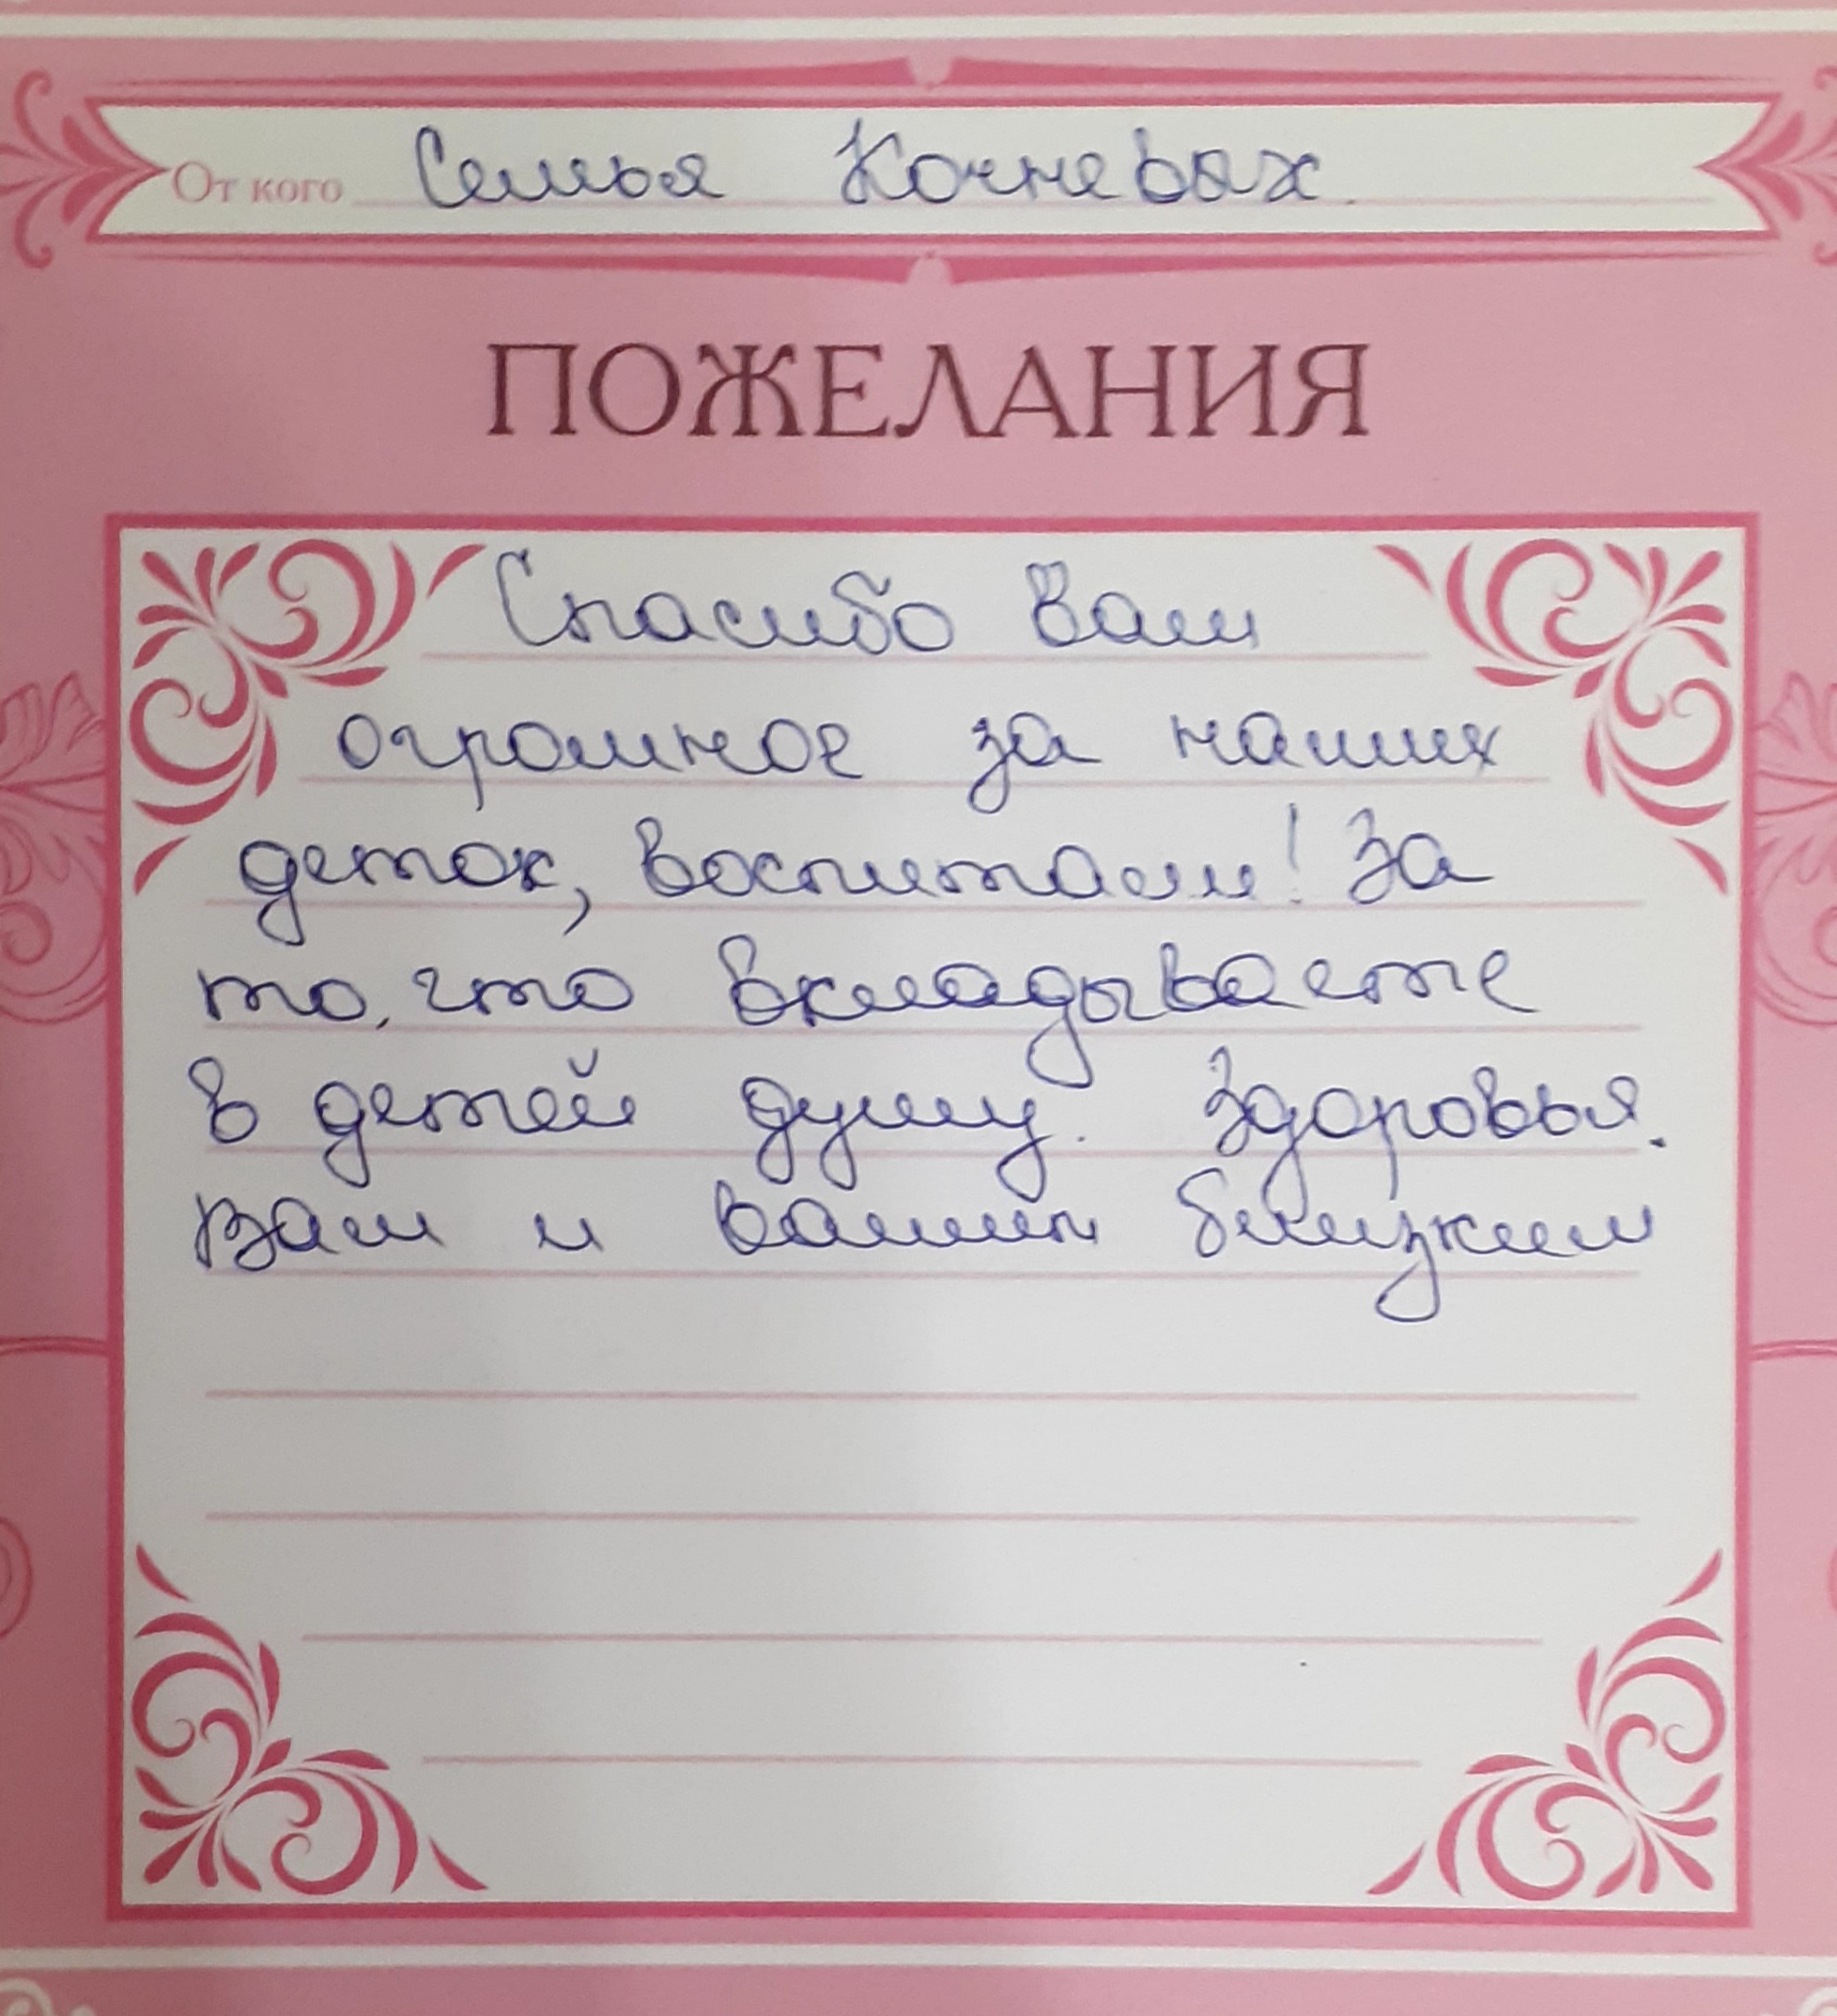 От кого Семья Кочневых.
ПОЖЕЛАНИЯ
Спасибо Вам
огромное за наших
деток, воспитали! За
то, что вкладываете
в детей душу. Здоровья.
Вам и вашим близким